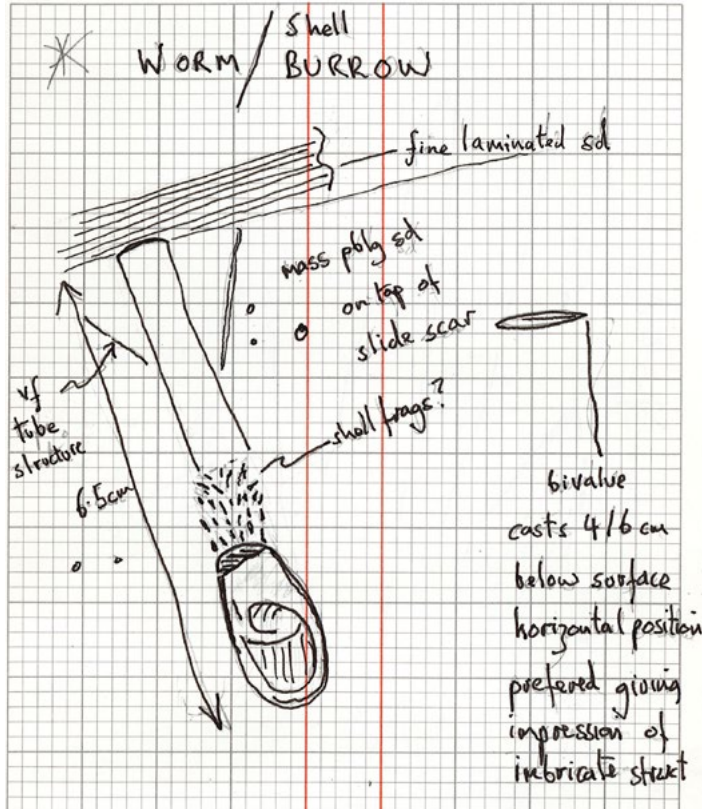 Shell
WORM / BURROW
fine laminated sd
mass pblg sd
on top of
slide scar
vf
tube
structure
shell frags?
6.5cm
bivalve
casts 4/6 cm
below surface
horizontal position
prefered giving
impression of
imbricate struct